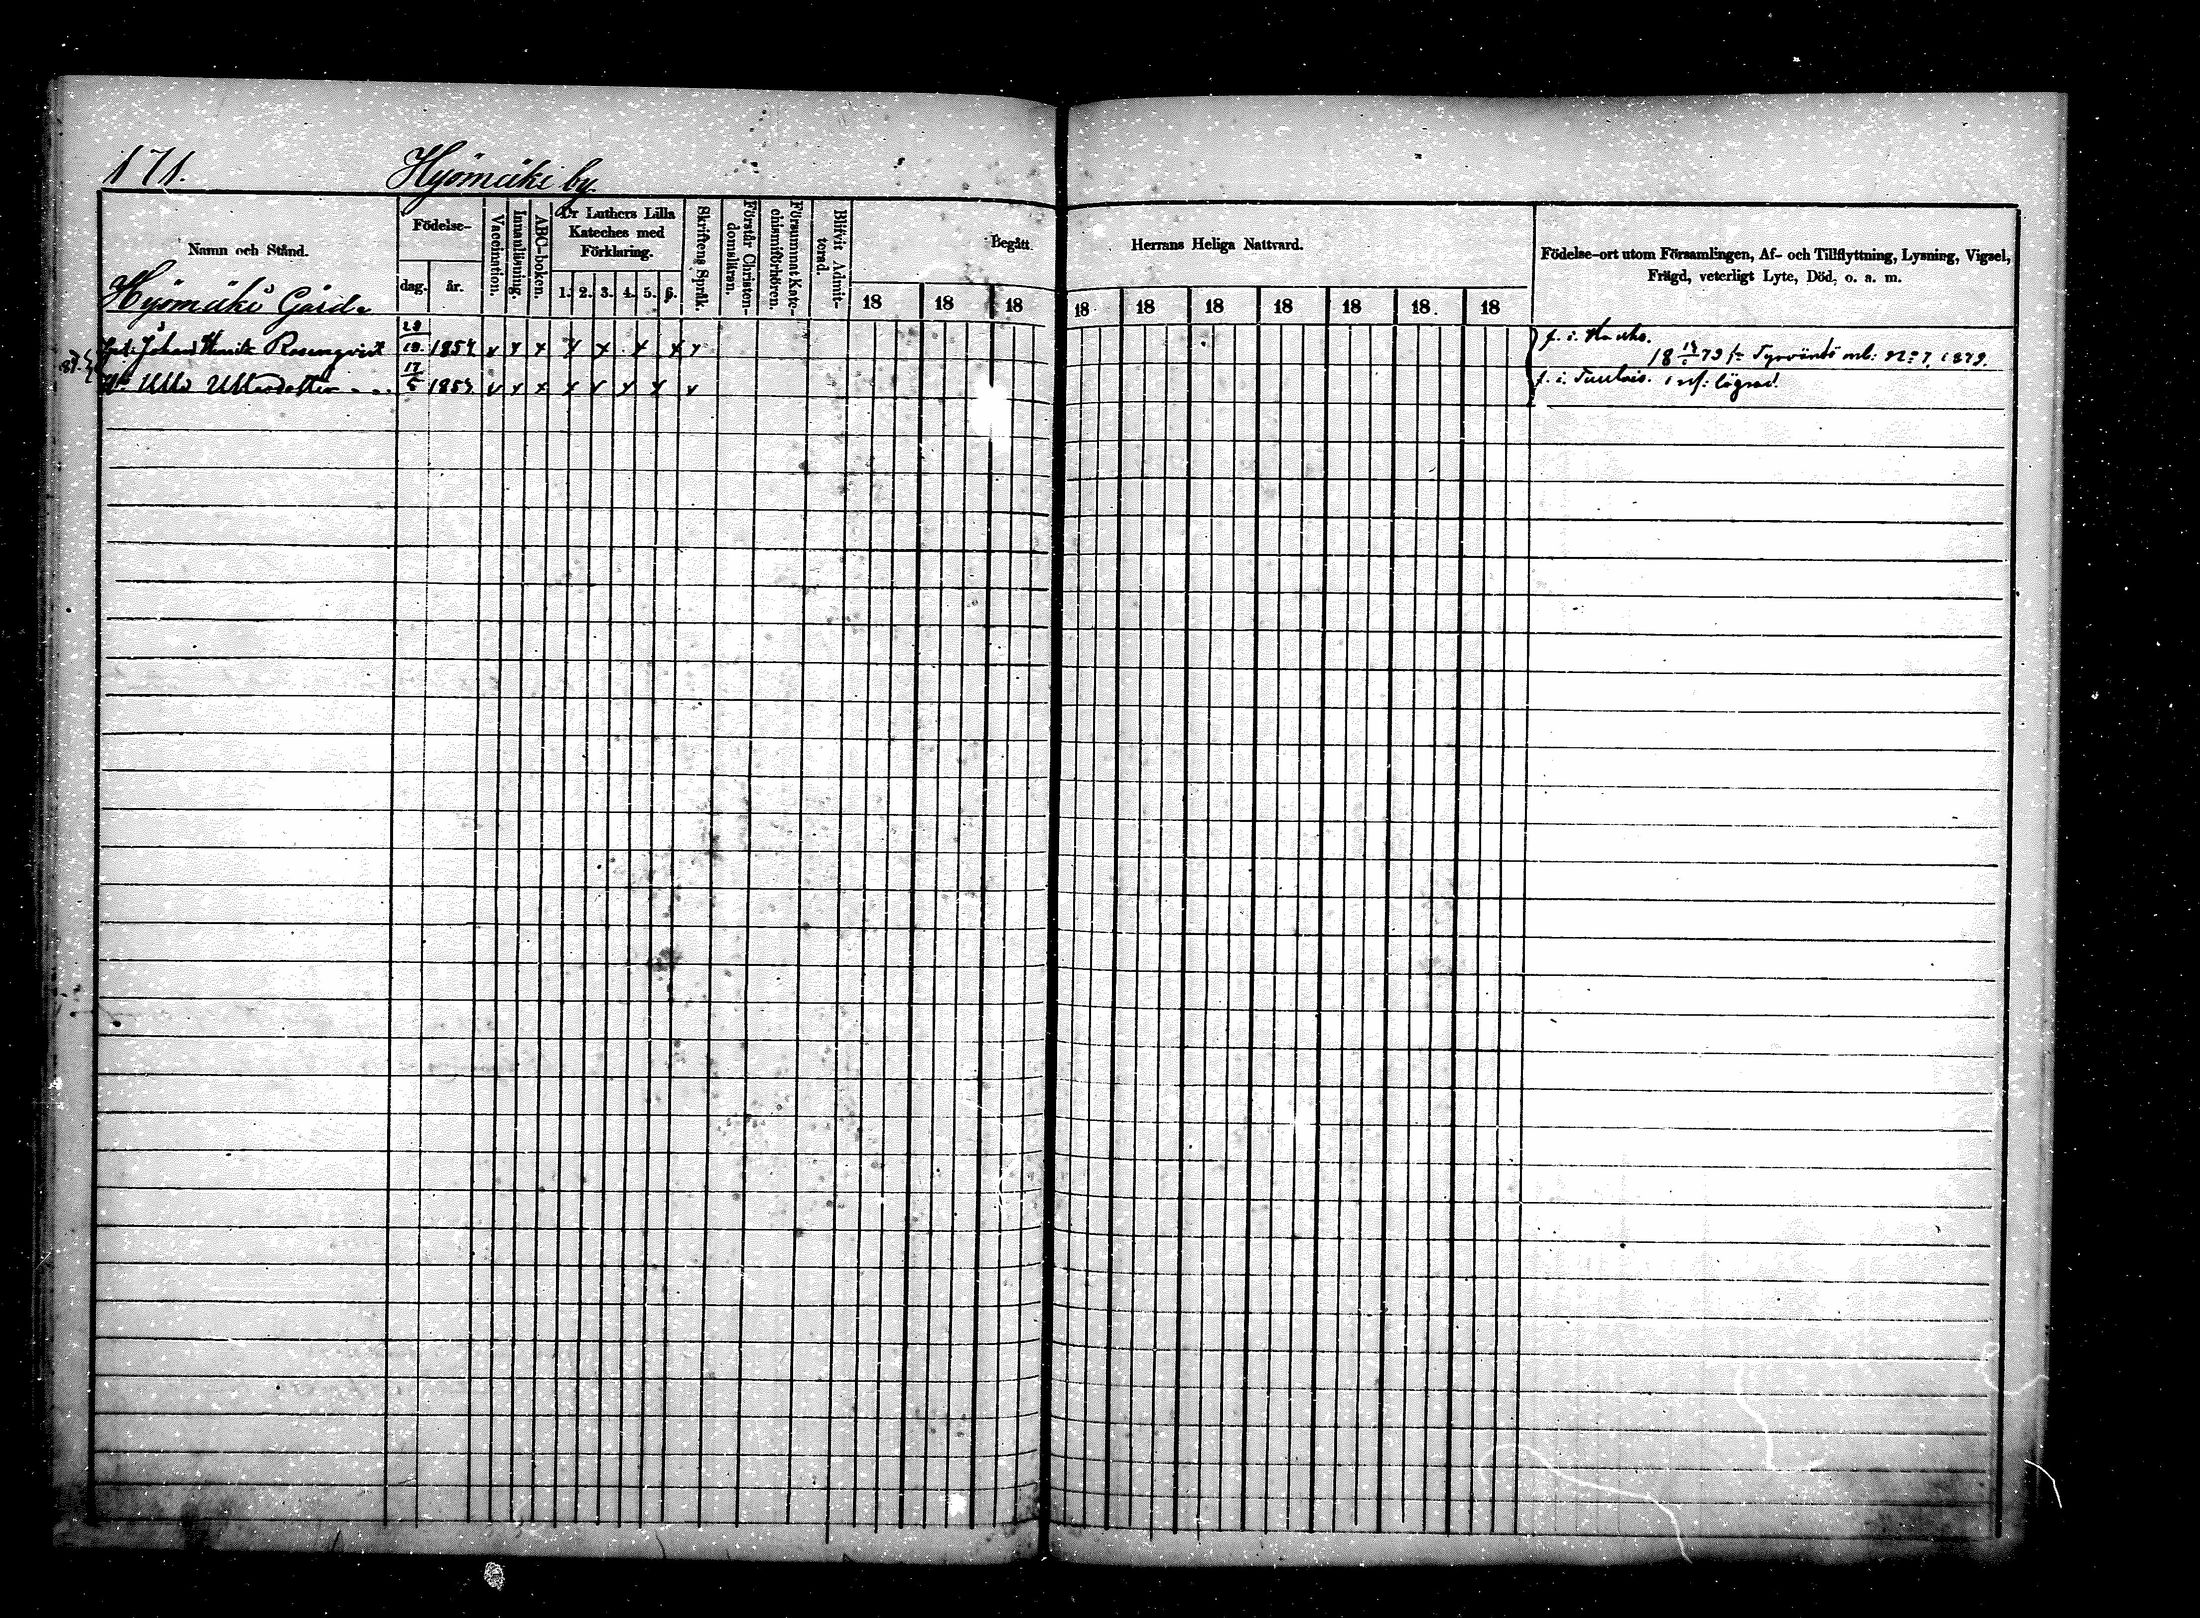 171. Hyömäki by.
Namn och Stånd.
Födelse-
dag. år.
Vaccination.
Innanläsning.
ABC-boken.
Dr Luthers Lilla
Kateches med
Förklaring.
1. 2. 3. 4. 5. 6.
Skriftens Språk.
Förstår Christen-
domsläran.
Försummat Kate-
chismiförhören.
Blifvit Admit-
terad.
Begått Herrans Heliga Nattvard.
18 18 18 18 18 18 18 18 18 18
Födelse-ort utom Församlingen, Af- och Tillflyttning, Lysning, Vigsel,
Frägd, veterligt Lyte, Död, o. a. m.
Hyömäki Gård.
Johan Henrik Rosenqvist 28/10 1854 x x x x x x x x f. i. Hauho.
18 79 fr Tyrväntö mb: No 7, 1879.
Ulla 17/5 1857 x x x x x x x x f. i. Tuulois.